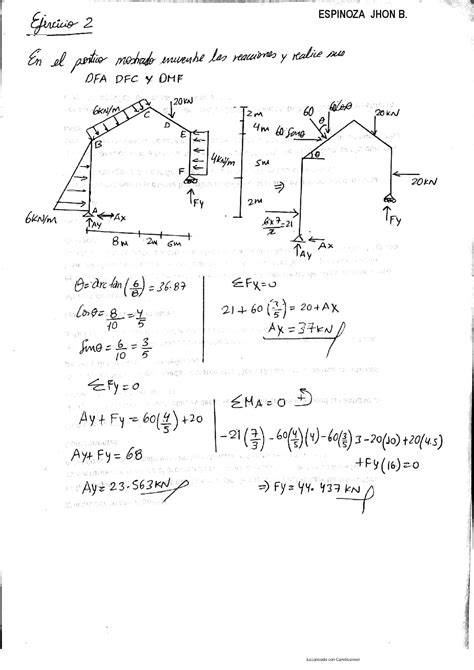 Ejercicio 2
ESPINOZA JHON B.
En el pórtico mostrado encuentre las reacciones y realice sus
DFA DFC y DMF
6kN/m
20kN
B
C
D
E
F
4kN/m
6kN/m
A
Ax
Ay
Fy
8m
2m
6m
2m
4m
5m
2m
60
60 Senθ
θ
θ
20KN
20KN
⇒
6x7/2=21
Ax
Ay
Fy
θ=arc tan(6/8)=36.87
Cosθ=8/10=4/5
Senθ=6/10=3/5
ΣFx=0
21+60(3/5)=20+Ax
Ax=37kN
ΣFy=0
Ay+Fy=60(4/5)+20
Ay+Fy=68
Ay=23.563KN
ΣMA=0
-21(7/3)-60(4/5)(4)-60(3/5)3-20(10)+20(4.5)
+Fy(16)=0
⇒Fy=44.437KN
Escaneado con CamScanner